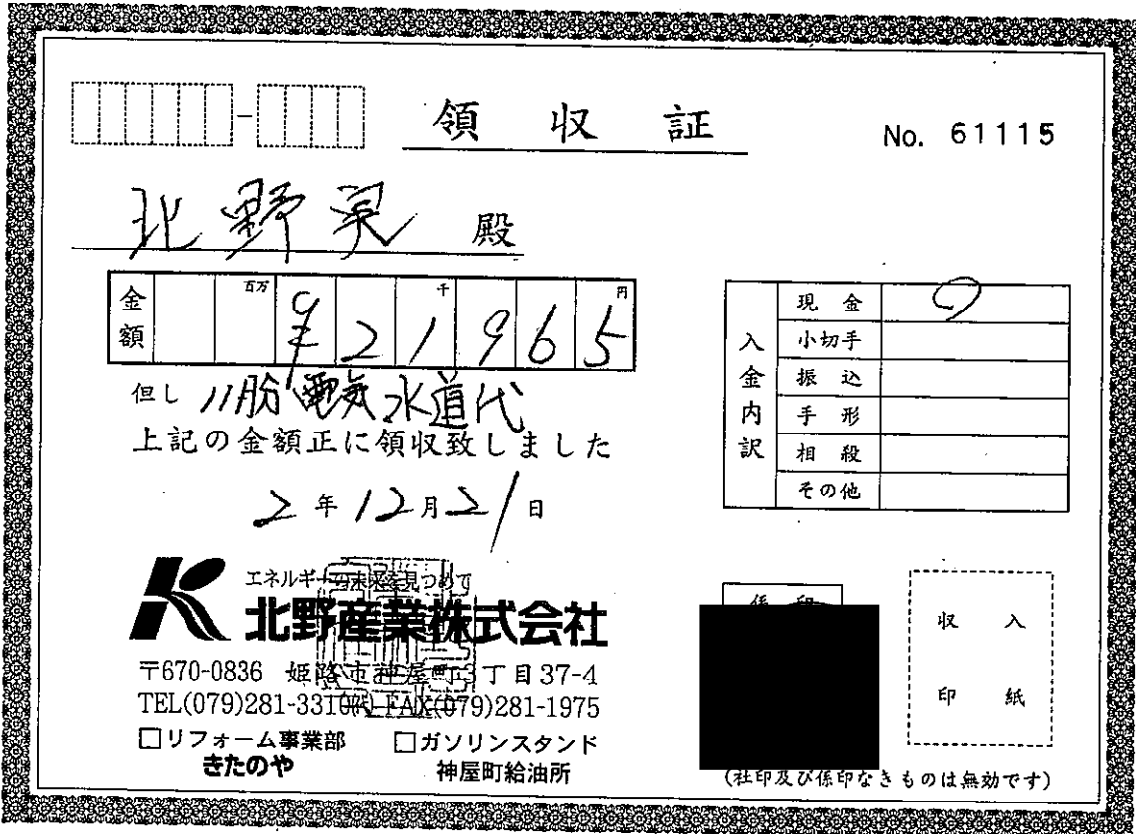 領収証
No. 61115
北野 殿
金額 百万 千 円
¥21965
但し 11月分電気水道代
上記の金額正に領収致しました
2年12月21日
入金内訳
現金
小切手
振込
手形
相殺
その他
エネルギーの未来を見つめて
北野産業株式会社
〒670-0836 姫路市神屋町3丁目37-4
TEL(079)281-3310(代) FAX(079)281-1975
□リフォーム事業部 □ガソリンスタンド
きたのや 神屋町給油所
係印
収入
印紙
(社印及び係印なきものは無効です)